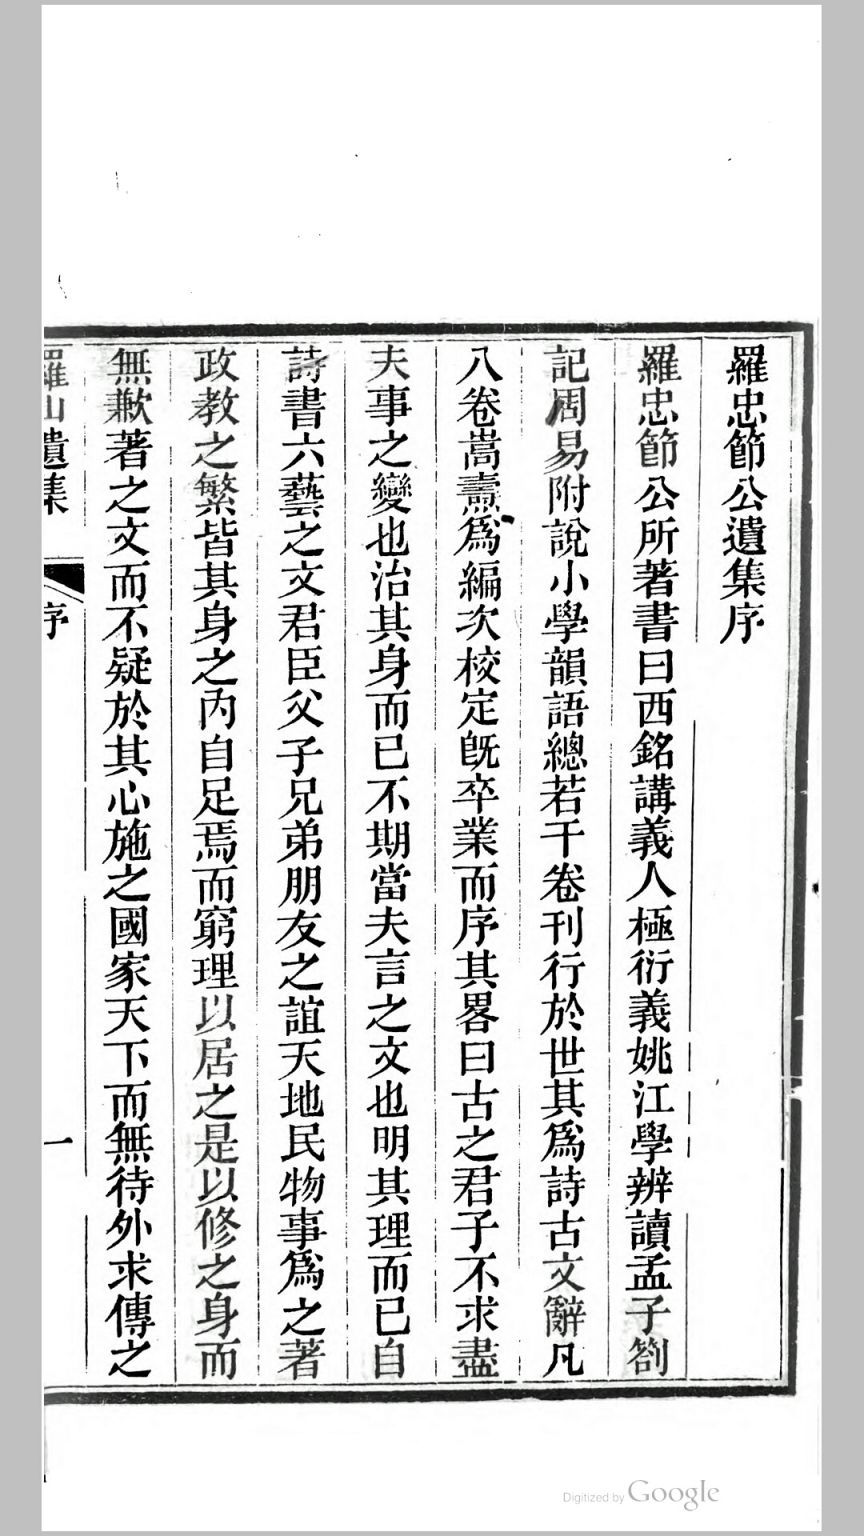 羅忠節公遺集序
羅忠節公所著書曰西銘講義人極衍義姚江學辨讀孟子劄
記周易附說小學韻語總若干卷刊行於世其爲詩古文辭凡
八卷嵩燾爲編次校定旣卒業而序其畧曰古之君子不求盡
夫事之變也治其身而已不期當夫言之文也明其理而已自
詩書六藝之文君臣父子兄弟朋友之誼天地民物事爲之著
政教之繁皆其身之內自足焉而窮理以居之是以修之身而
無歉著之文而不疑於其心施之國家天下而無待外求傳之
羅山遺集 序 一
Digitized by Google